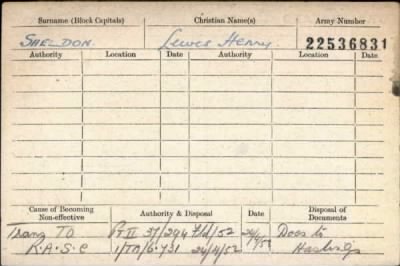 Surname (Block Capitals) Christian Name(s) Army Number
SHELDON. Lewes Henry 22536831
Authority Location Date Authority Location Date
Cause of Becoming Non-effective Authority & Disposal Date Disposal of Documents
Trans TO Pt II 37/294 52 Docs to
R.A.S.C 1/TO/6731 24/4/52 Hastings